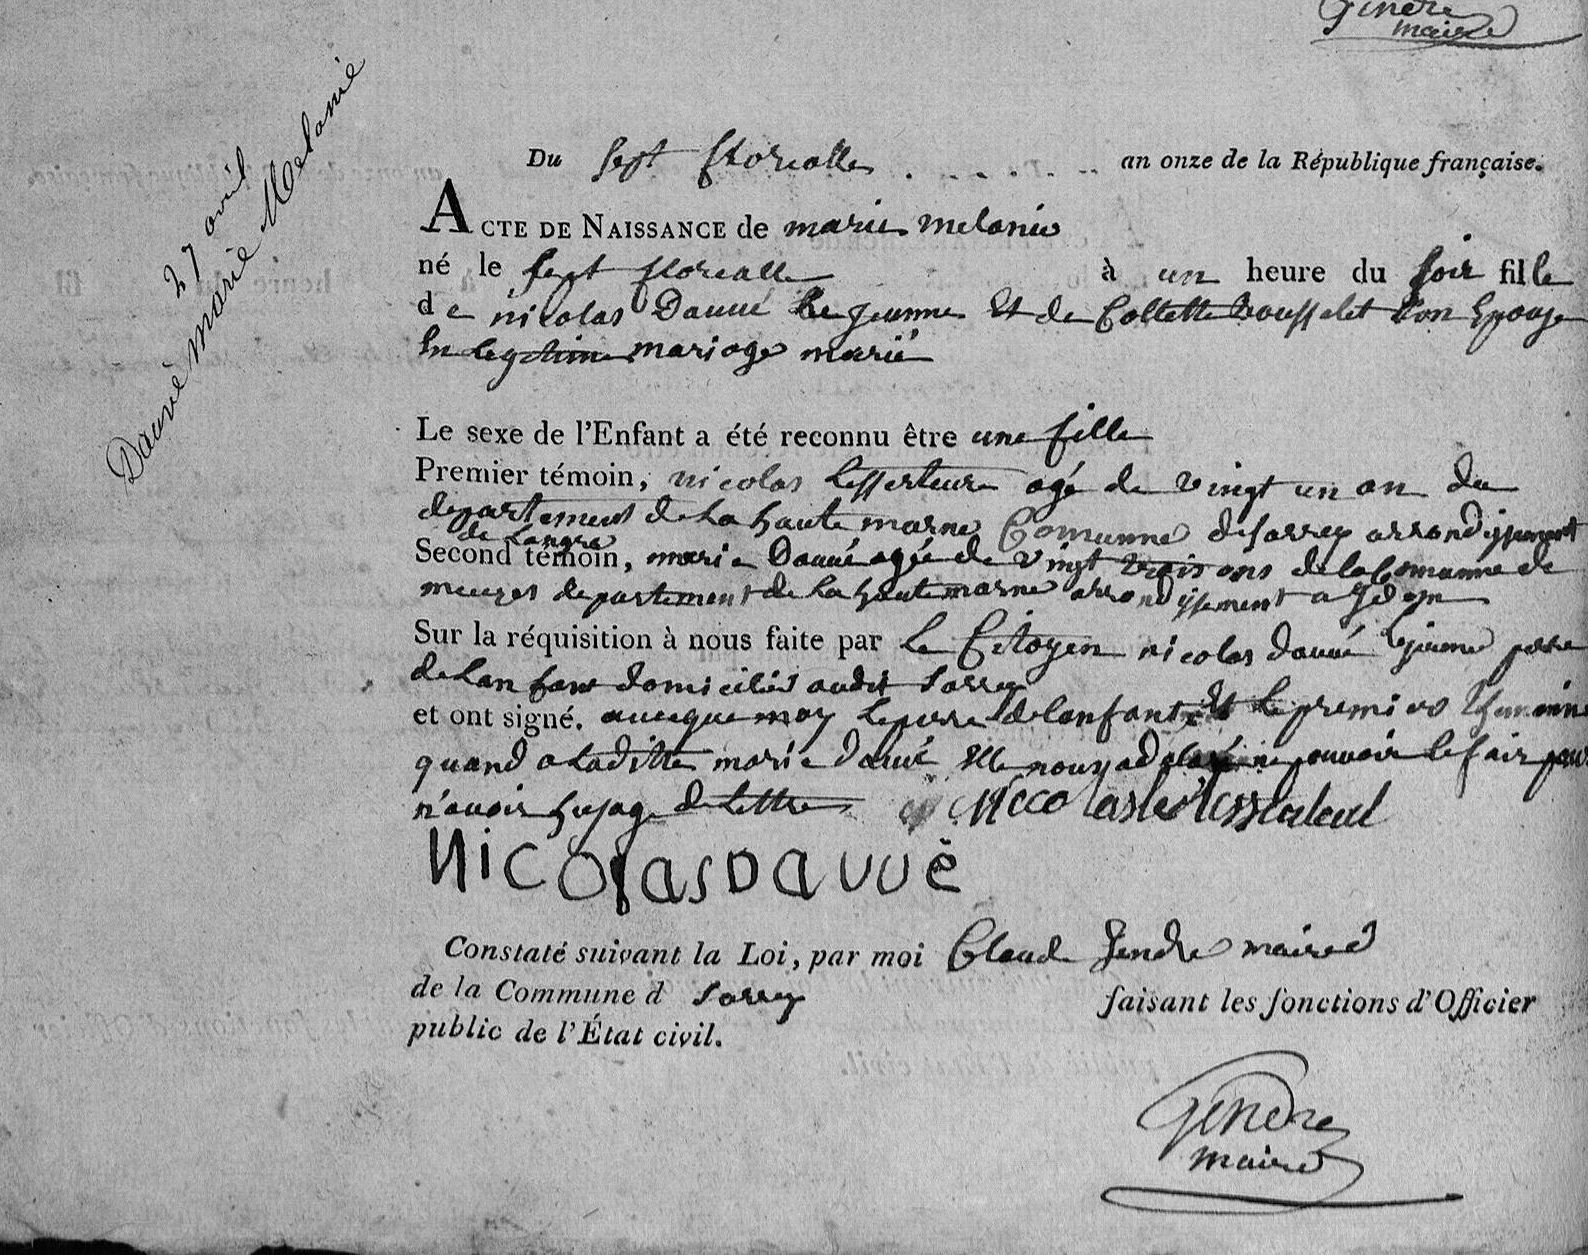 Gendre
maire
27 avril
Dauvé Marie Melanie
Du sept floréalle an onze de la République française.
ACTE DE NAISSANCE de marie melanie
né le sept florealle à un heure du soir fille
de nicolas Dauvé le jeunne Et de Collette rousselet son Epouse
En legitime mariage marié
Le sexe de l'Enfant a été reconnu être une fille
Premier témoin, nicolas agé de vingt un an du
departement de la haute marne Comunne de sarrey arrondissement
de Langre
Second témoin, marie Dauvé agée de vingt trois ans de la Comunne de
meuzes departement de la haute marne arrondissement
Sur la réquisition à nous faite par le Citoyen nicolas dauvé le jeune pere
de lanfant domicilié audit sarrey
et ont signé. avecque moy le pere de lanfant Et le premier
quand a laditte marie dauvé Elle nous a ne pouvoir le fair pour
n'avoir husage de lettre Niccolas
NicolasDauvé
Constaté suivant la Loi, par moi Claude Gendre maire
de la Commune d sarrey faisant les fonctions d'Officier
public de l'État civil.
Gendre
maire